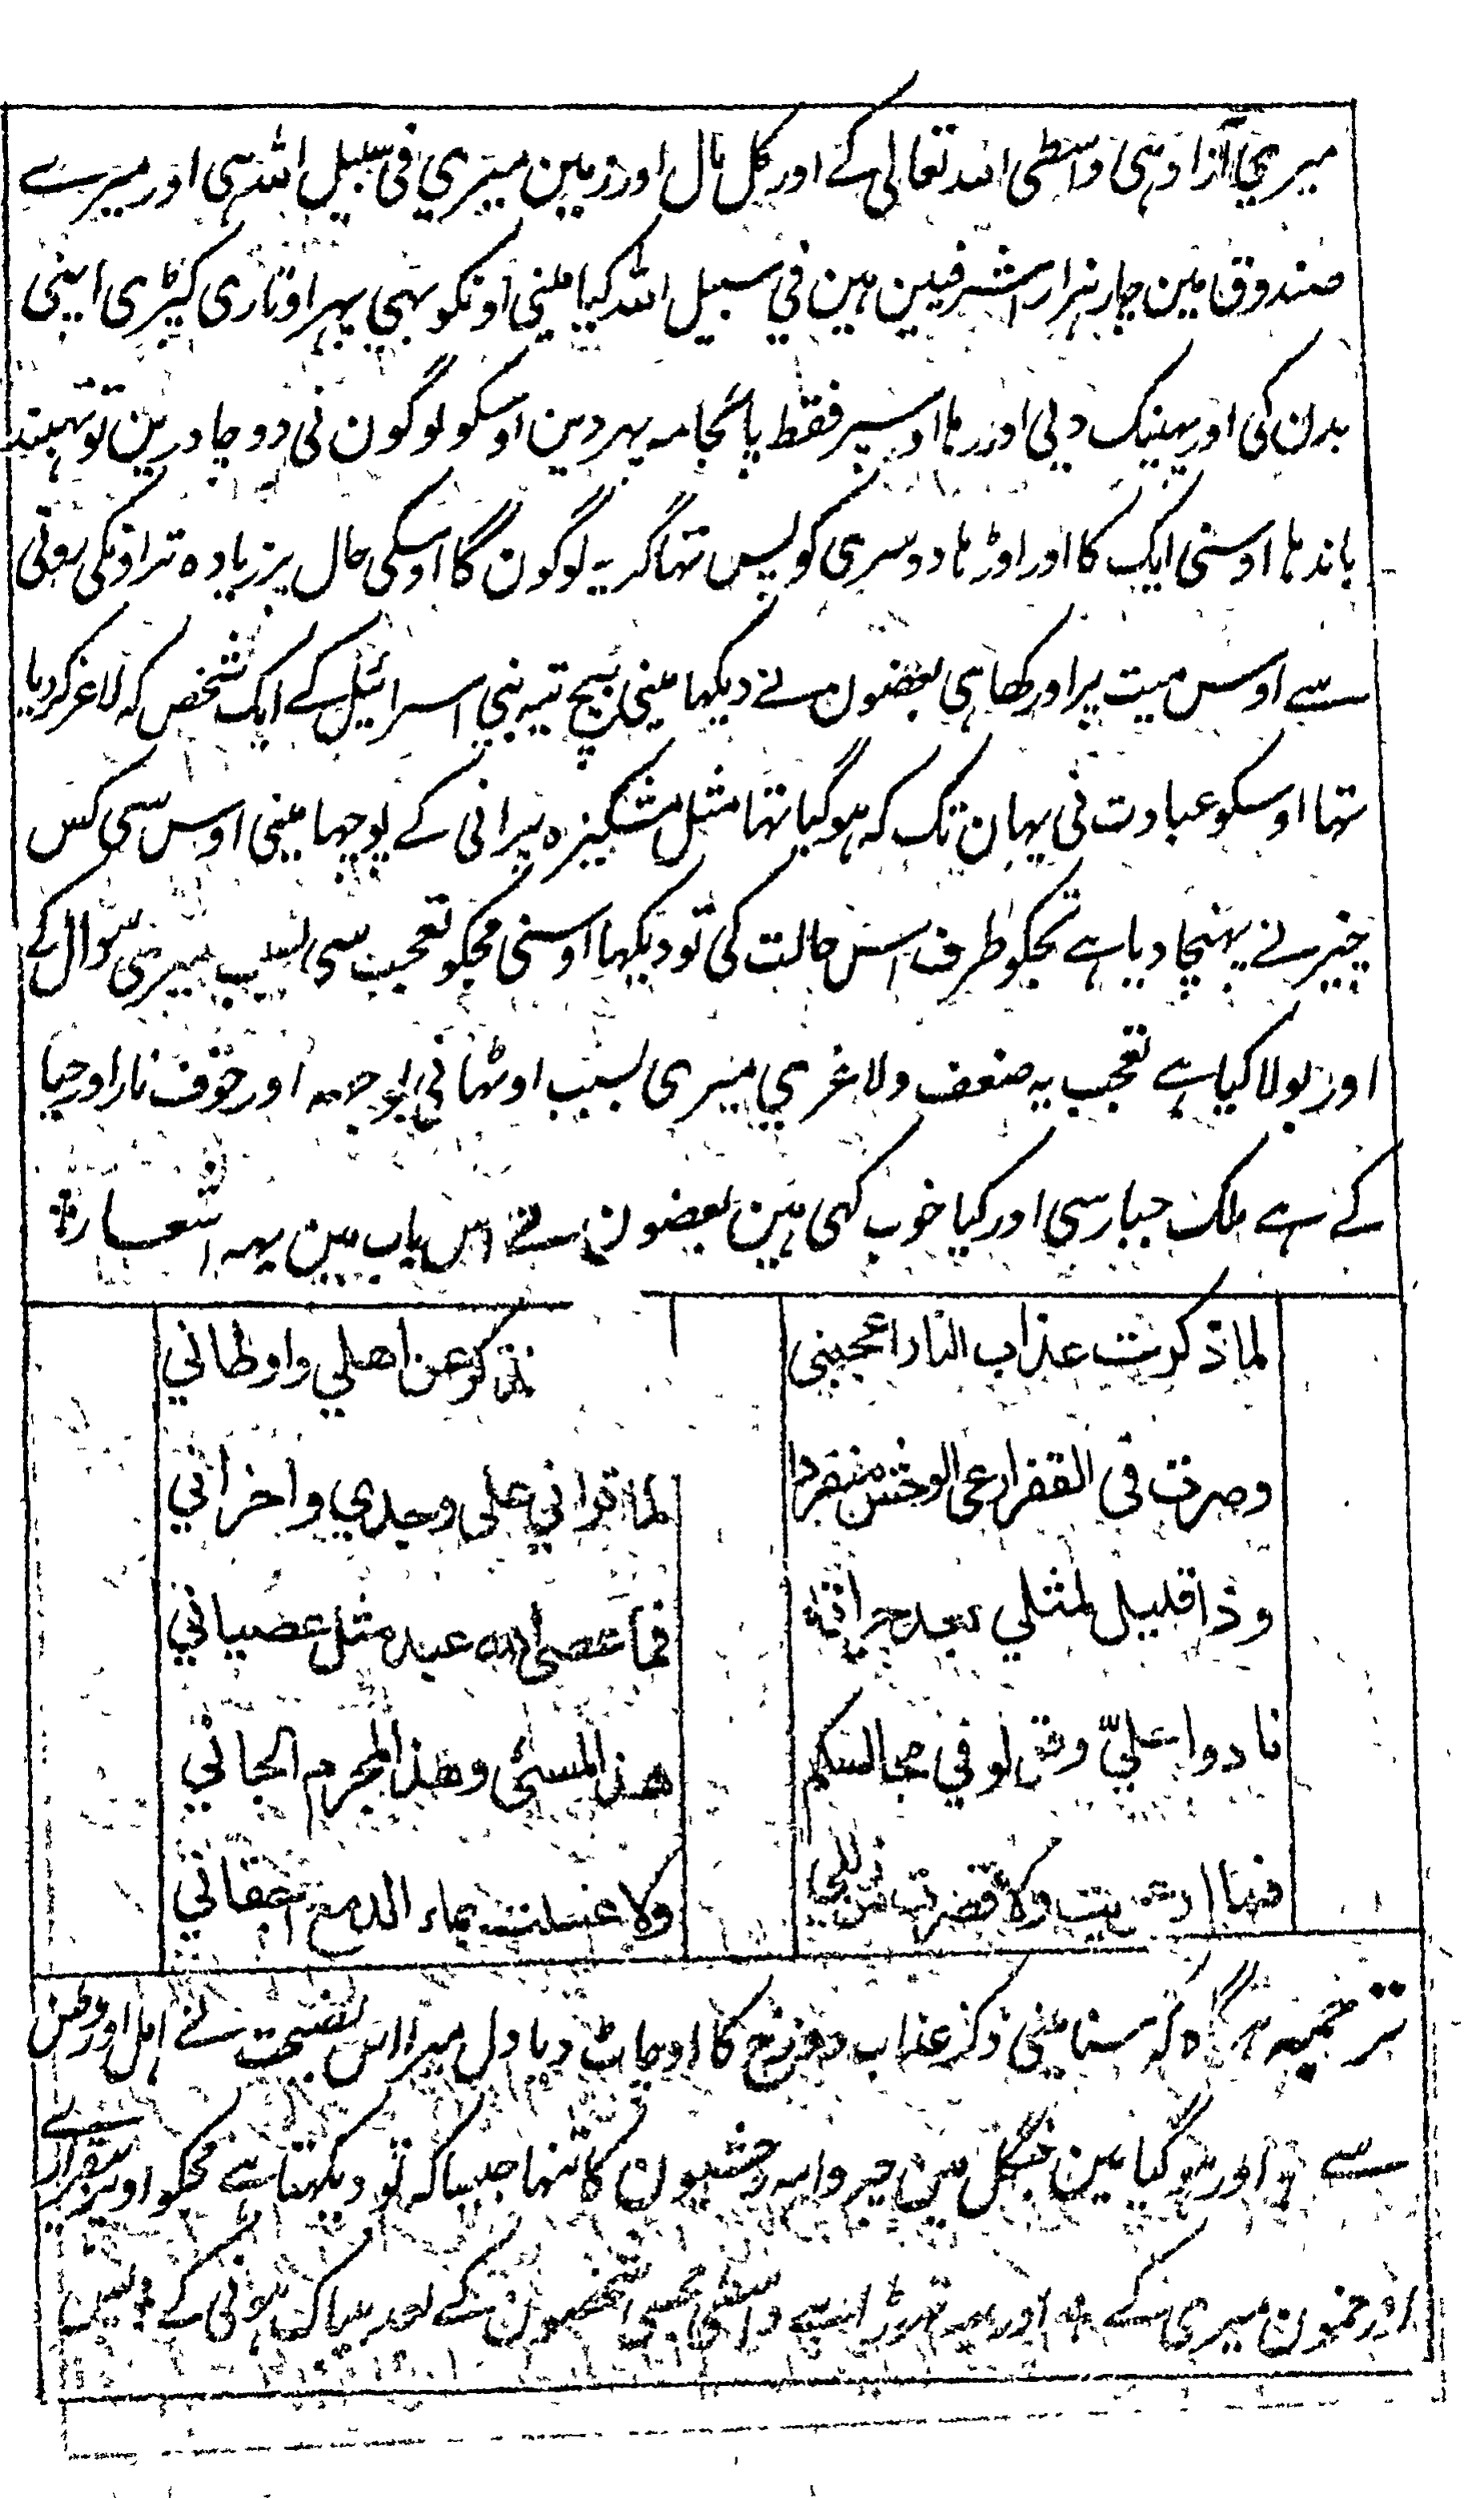 میری آزاد ہی واسطی اللہ تعالی کے اور کل مال اور زمین میری فی سبیل اللہ ہی اور میرے
صندوق مین چار ہزار اشرفین ہین فی سبیل اللہ کیا مینی اونکو بہی پہر اوتاری کپڑی اپنی
بدن کی اور پہینک دیی اور رہا اوسپر فقط پائجامہ پہر دین اوسکو لوگون نی دو چادرین تو تہبند
باندہا اوسنی ایک کا اور اوڑہا دوسری کو پس تہا گریہ لوگون کا اوسکی حال پر زیادہ تر اونکی رونی
سے اوس میت پر اور کہا ہی بعضون نے دیکہا مینی بیچ تیہ بنی اسرائیل کے ایک شخص کہ لاغر کردیا
تہا اوسکو عبادت نی یہان تک کہ ہوگیا تہا مثل مشکیزہ پرانی کے پوچہا مینی اوس سی کس
چیز نے پہنچا دیا ہے تجکو طرف اس حالت کی تو دیکہا اوسنی مجکو تعجب سی بسبب میری سوال کے
اور بولا کیا ہے تعجب یہ ضعف ولاغری میری بسبب اوٹہانی بوجہہ اور خوف نار اور حیا
کے ہے ملک جبار سی اور کیا خوب کہی ہین بعضون نے اس باب مین یہہ اشعار
لما ذکرت عذاب النار اعجبنی
تذکر عن اهلي واوطاني
وصرت فی القفر ارعی الوحش منفردا
لما تراني علی وجدي واحزاني
وذا قليل لمثلي بعد جراته
فما عصی الله عبد مثل عصياني
نادوا علیّ وقولو في مجالسکم
هذا المسئی وهذا المجرم الجاني
ولا قصرت من زللي
ولا غسلت بماء الدمع اجفاني
ترجمہ ہرگاہ کہ سنا مینی ذکر عذاب دوزخ کا اوچاٹ دیا دل میرا اس نصیحت نے اہل اور وطن
سے اور ہوگیا مین جنگل مین چرواہہ وحشیون کا تنہا جیسا کہ تو دیکہتا ہے مجکو اوپر بیقراری
اور غمون میری کے اور یہ تہوڑا ہے واسطی مجہسی شخصون کے بعد بیباک ہونی کے